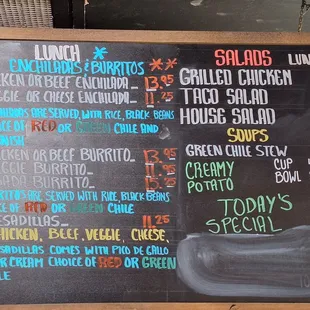 LUNCH
ENCHILADAS & BURRITOS
KEN OR BEEF ENCHILADA... 13.95
GIE OR CHEESE ENCHILADA... 11.25
CHILADAS ARE SERVED WITH RICE, BLACK BEANS
ICE OF RED OR GREEN CHILE AND
KEN OR BEEF BURRITO... 13.95
VEGGIE BURRITO... 11.95
BURRITO...
RITOS ARE SERVED WITH RICE, BLACK BEANS
CE OF RED OR GREEN CHILE
SADILLAS... 11.25
HICKEN, BEEF, VEGGIE, CHEESE,
SADILLAS COMES WITH PICO DE GALLO
UR CREAM CHOICE OF RED OR GREEN
LE
SALADS LUN
GRILLED CHICKEN
TACO SALAD
HOUSE SALAD
SOUPS
GREEN CHILE STEW
CREAMY
POTATO
CUP
BOWL
TODAY'S
SPECIAL